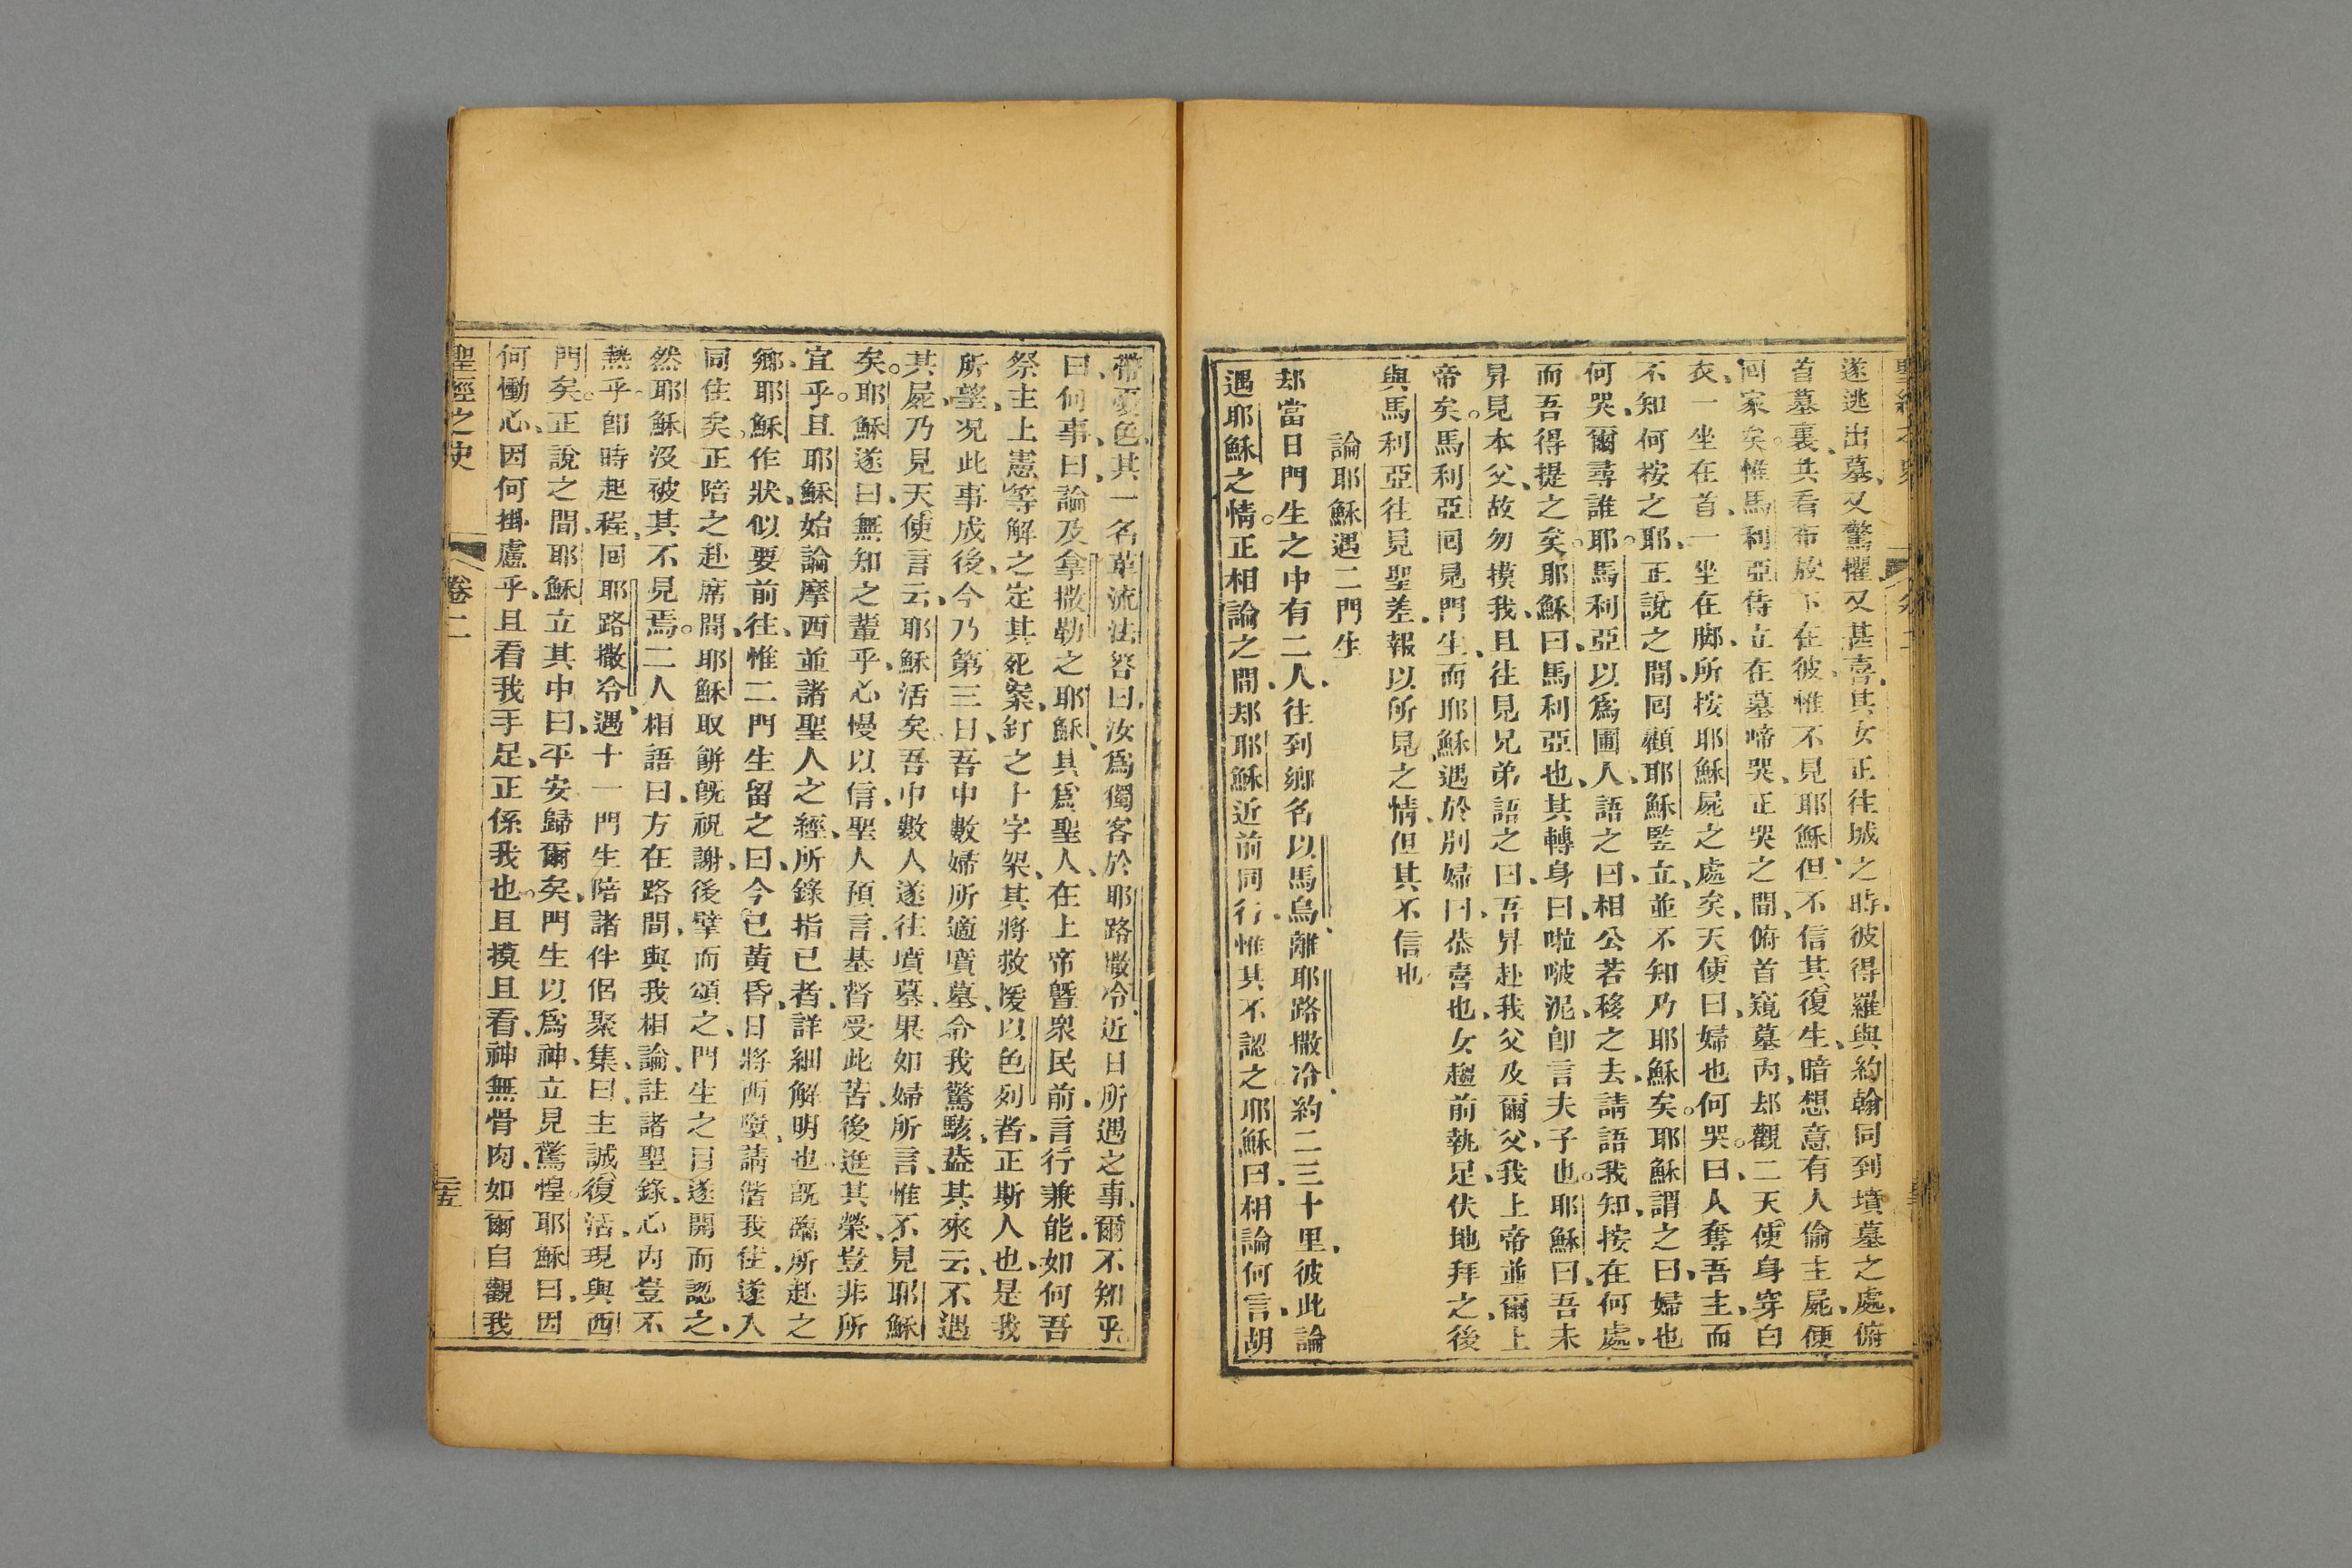 遂逃出墓、又驚懼又甚喜、其女正往城之時、彼得羅與約翰同到墳墓之處、俯
首墓裏、共看布放下在彼、惟不見耶穌、但不信其復生、暗想意有人偷主屍、便
回家矣。惟馬利亞侍立在墓啼哭、正哭之間、俯首窺墓內、却觀二天使身穿白
衣、一坐在首、一坐在脚、所按耶穌屍之處矣、天使曰、婦也何哭。曰、人奪吾主、而
不知何按之耶、正說之間、回顧耶穌竪立、並不知乃耶穌矣。耶穌謂之曰、婦也
何哭、爾尋誰耶。馬利亞以爲圃人、語之曰、相公若移之去、請語我知、按在何處、
而吾得提之矣。耶穌曰、馬利亞也、其轉身曰、啦啵泥、卽言夫子也。耶穌曰、吾未
昇見本父、故勿摸我、且往見兄弟、語之曰、吾昇赴我父及爾父、我上帝並爾上
帝矣。馬利亞回見門生、而耶穌遇於別婦曰、恭喜也、女趨前執足、伏地拜之、後
與馬利亞往見聖差、報以所見之情、但其不信也
論耶穌遇二門生
却當日門生之中有二人、往到鄉名以馬烏、離耶路撒冷、約二三十里、彼此論
遇耶穌之情。正相論之間、却耶穌近前同行、惟其不認之。耶穌曰、相論何言、胡
帶憂色、其一名革流法答曰、汝爲獨客於耶路撒冷、近日所遇之事、爾不知乎。
曰、何事、曰、論及拿撒勒之耶穌、其爲聖人、在上帝曁衆民前、言行兼能、如何吾
祭主上憲等解之定其死案、釘之十字架、其將救援以色列者、正斯人也、是我
所望、况此事成後、今乃第三日、吾中數婦所適墳墓、令我驚駭、葢其來云、不遇
其屍、乃見天使言云、耶穌活矣、吾中數人遂往墳墓、果如婦所言、惟不見耶穌
矣。耶穌遂曰、無知之輩乎、心慢以信、聖人預言、基督受此苦後進其榮、豈非所
宜乎。且耶穌始論摩西並諸聖人之經、所錄指已者、詳細解明也。旣臨所赴之
鄉、耶穌作狀、似要前往、惟二門生留之曰、今已黄昏、日將西墮、請偕我住、遂入
同住矣。正陪之赴席間、耶穌取餅旣祝謝、後擘而頌之、門生之目遂開而認之、
然耶穌沒被其不見焉。二人相語曰、方在路間、與我相論、註諸聖錄、心內豈不
熱乎。卽時起程、回耶路撒冷、遇十一門生、陪諸伴侶聚集曰、主誠復活、現與西
門矣。正說之間、耶穌立其中曰、平安歸爾矣、門生以爲神、立見驚惶。耶穌曰、因
何慟心、因何掛慮乎、且看我手足、正係我也。且摸且看、神無骨肉、如爾自觀我
聖經之史 卷二 二五